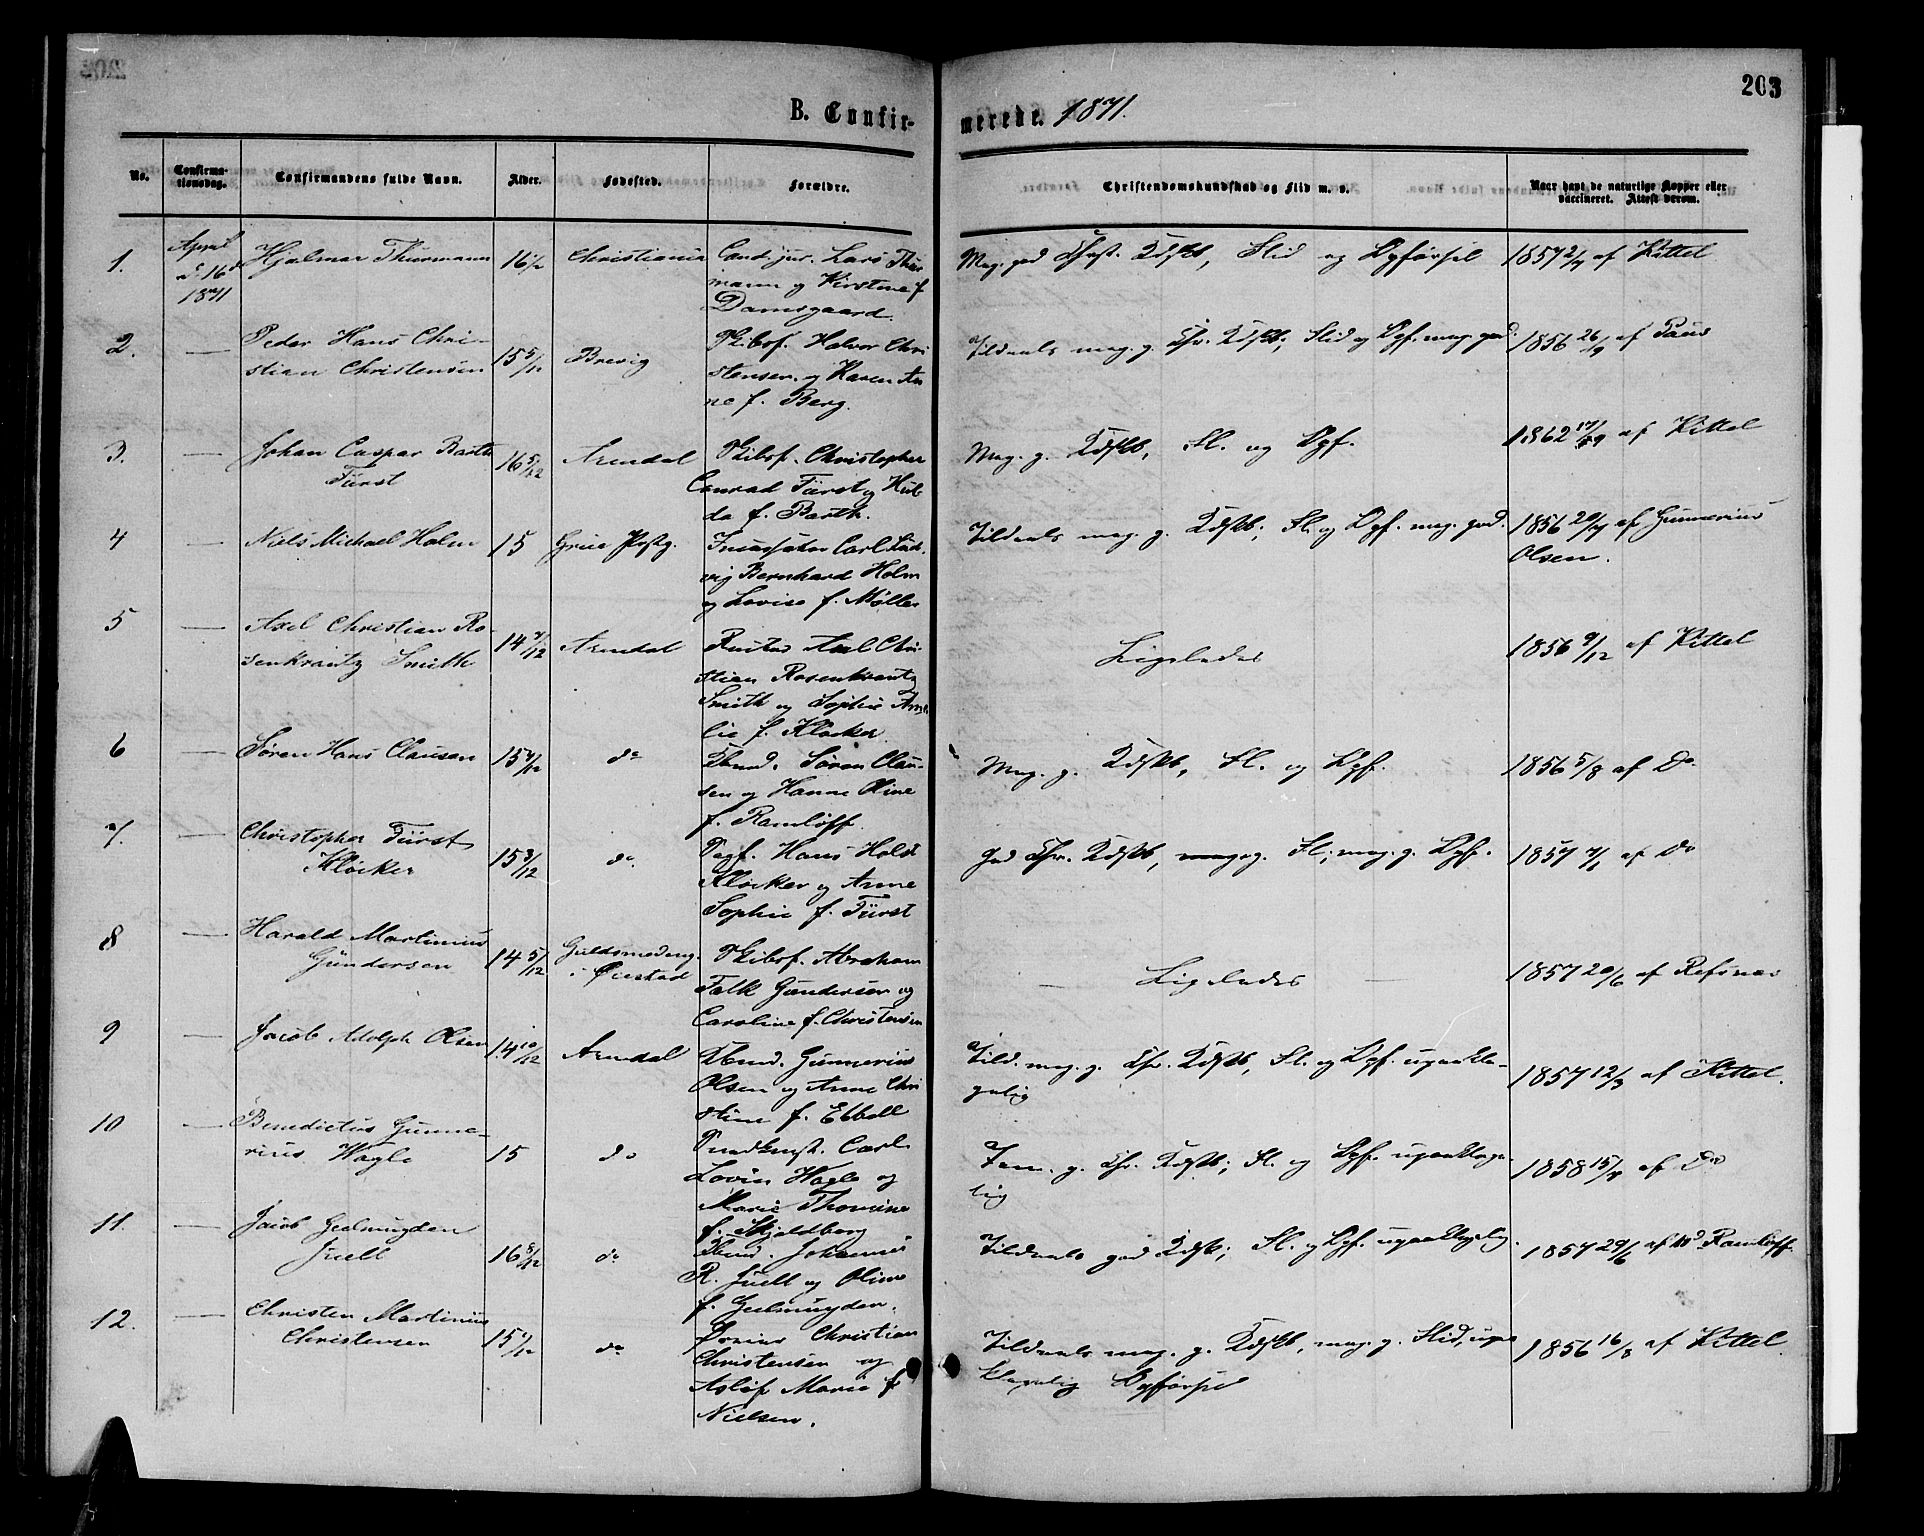 203
B. Confirmerede. 1871.
No.
Confirmationsdag.
Confirmandens fulde Navn.
Alder.
Fødested.
Forældre.
Christendomskundskab og Flid m. v.
Naar havt de naturlige Kopper eller vaccineret. Attest derom.
1.
April
d. 16
1871
Hjalmar Thurmann
16½
Christiania
Cand. jur. Lars Thur
mann og Kirstine f.
Damsgaard.
Meg. god Chr. Kdskb, Flid og Opførsel
1857 2/7 af Kittel
2.
—
Peder Hans Chri-
stian Christensen
15 5/12
Brevig
Skibsf. Halvor Chri
stensen og Karen An
ne f. Berg.
Tildeels meg. g. Chr. Kdskb; Flid og Opf. meg. god.
1856 26/9 af Paus
3.
—
Johan Caspar Barth
Fürst
16 5/12
Arendal
Skibsf. Christopher
Conrad Fürst og Hul
da f. Barth.
Meg. g. Kdskb, Fl. og Opf.
1862 af Kittel
4
—
Niels Michael Holm
15
Grue Pstg.
Carl Lud
vig Bernhard Holm
og Lovise f. Møller
Tildeels meg. g. Kdskb; Fl. og Opf. meg. god.
1856 20/7 af Gunnerius
Olsen.
5
—
Axel Christian Ro-
senkrantz Smith
14 7/12
Arendal
Axel Chri
stian Rosenkrantz
Smith og Sophie Ama
lie f. Kløcker.
Ligeledes
1856 9/12 af Kittel
6
—
Søren Hans Clausen
15 7/12
do
Søren Clau-
sen og Hanne Oline
f. Ramløff.
Meg. g. Kdskb, Fl. og Opf.
1856 5/8 af Do
7.
—
Christopher Fürst
Kløcker
15 3/12
do
Hans Holst
Kløcker og Anne
Sophie f. Fürst
God Chr. Kdskb, meg. g. Fl; meg. g. Opf.
1857 af Do
8
—
Harald Martinius
Gundersen
14 5/12
Guldsmedeng.
i Øiestad
Skibsf. Abraham
Falk Gundersen og
Caroline f. Christensen
— Ligeledes —
1857 20/6 af Refsnes
9
—
Jacob Adolph Olsen
14 10/12
Arendal
Gunnerius
Olsen og Anne Chri
stine f. Ebbell
Tild. meg. g. Chr. Kdskb, Fl. og Opf. upaakla-
gelig
1857 12/3 af Kittel.
10
—
Benedictus Gunne-
rius Hagle
15
do
Carl
Lovin Hagle og
Marie Thomine
f. Skjoldborg
Tem. g. Chr. Kdskb; Fl. og Opf. upaaklage
lig
1858 15/7 af Do
11.
—
Jacob Gjelmuyden
Juell
16 8/12
do
Johannes
R. Juell og Oline
f. Gjelmuyden.
Tildeels god Kdsk; Fl. og Opf. upaaklagelig.
1857 29/6 af Md. Ramløff.
12.
—
Christen Martinius
Christensen
15 7/12
do
Christian
Christensen og
Asløf Marie f.
Nielsen.
Tildeels meg. g. Kdskb, meg. g. Flid, upaa
klagelig Opførsel
1856 16/8 af Kittel.